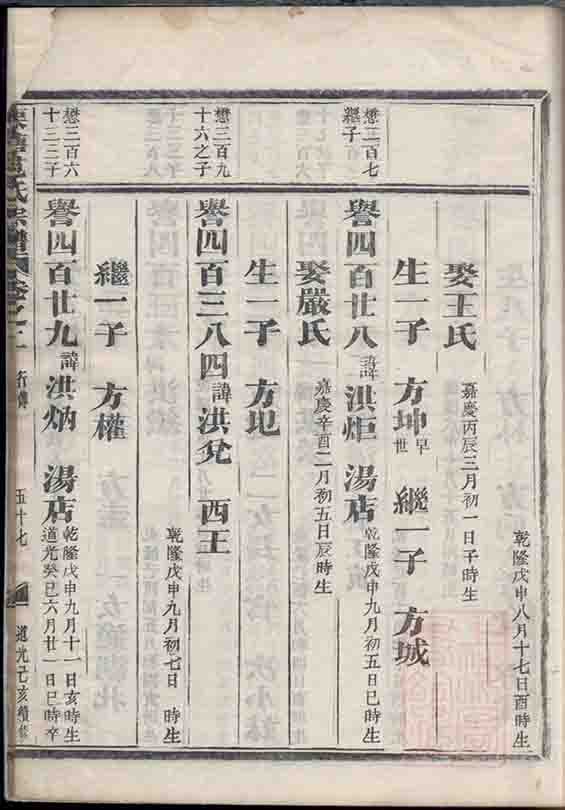 乾隆戊申八月十七日酉時生
娶王氏 嘉慶丙辰三月初一日子時生
生一子 方坤 早世 繼一子 方城
懋二百七
繼子
譽四百廿八 諱洪炬 湯店 乾隆戊申九月初五日巳時生
娶嚴氏 嘉慶辛酉二月初五日辰時生
生一子 方圯
懋三百九
十六之子
譽四百三八四 諱洪兊 西王
乾隆戊申九月初七日 時生
繼一子 方權
懋三百六
十三之子
譽四百廿九 諱洪炳 湯店 乾隆戊申九月十一日亥時生
道光癸巳六月廿一日巳時卒
氏宗譜 卷之 行傳 五十七 道光己亥續修